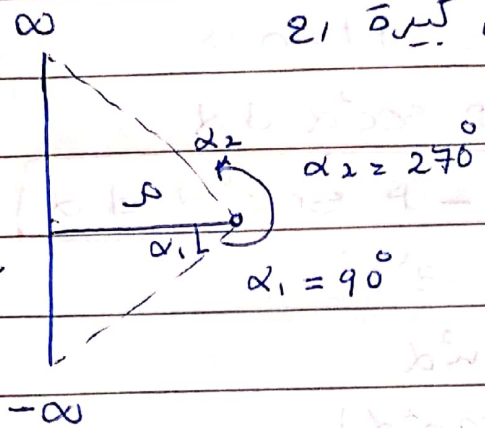 ∞ كبيرة
α₂
α₂ = 270°
ρ
α₁
α₁ = 90°
-∞